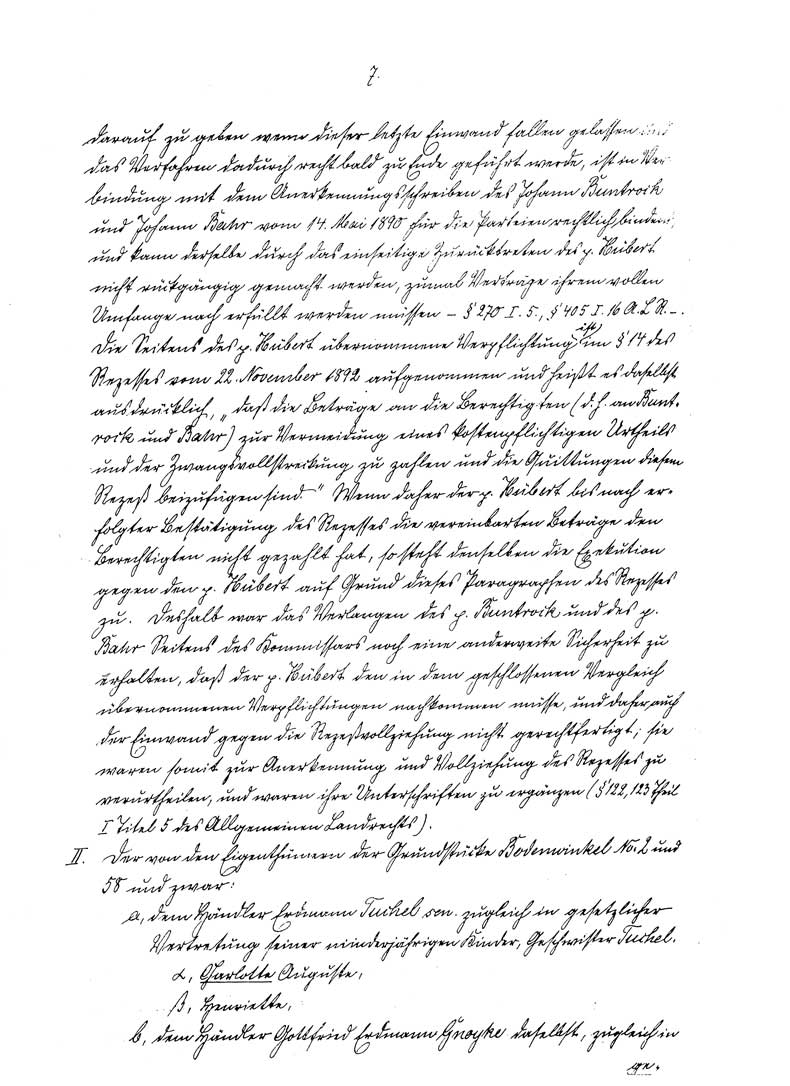 7.
darauf zu geben wenn dieser letzte Einwand fallen gelassen und
das Verfahren dadurch recht bald zu Ende geführt werde, ist in Ver-
bindung mit dem Anerkennungsschreiben des Johann Buntrock
und Johann Bahr vom 14. Mai 1890 für die Parteien rechtlich bindend,
und kann derselbe durch das einseitige Zurücktreten des p. Hübert
nicht rückgängig gemacht werden, zumal Verträge ihrem vollen
Umfange nach erfüllt werden müssen – § 270 I. 5., § 405 I. 16 A. L. R. –.
Die Seitens des p. Hübert übernommene Verpflichtung ist im § 14 des
Rezesses vom 22. November 1892 aufgenommen und heißt es daselbst
ausdrücklich, „daß die Beträge an die Berechtigten (d. h. an Bunt-
rock und Bahr) zur Vermeidung eines kostenpflichtigen Urtheils
und der Zwangsvollstreckung zu zahlen und die Quittungen diesem
Rezeß beizufügen sind." Wenn daher der p. Hübert bis nach er-
folgter Bestätigung des Rezesses die vereinbarten Beträge den
Berechtigten nicht gezahlt hat, so steht denselben die Exekution
gegen den p. Hübert auf Grund dieses Paragraphen des Rezesses
zu. Deshalb war das Verlangen des p. Buntrock und des p.
Bahr Seitens des Kommissars noch eine anderweite Sicherheit zu
erhalten, daß der p. Hübert den in dem geschlossenen Vergleich
übernommenen Verpflichtungen nachkommen müsse, und daher auch
der Einwand gegen die Rezeßvollziehung nicht gerechtfertigt; sie
waren somit zur Anerkennung und Vollziehung des Rezesses zu
verurtheilen, und waren ihre Unterschriften zu ergänzen (§ 122, 123 Theil
I Titel 5 des Allgemeinen Landrechts).
II. Der von den Eigenthümern der Grundstücke Bodenwinkel No. 2 und
58 und zwar:
a, dem Händler Erdmann Tuchel sen. zugleich in gesetzlicher
Vertretung seiner minderjährigen Kinder, Geschwister Tuchel.
α, Charlotte Auguste,
β, Henriette,
b, dem Händler Gottfried Erdmann Gnoyke daselbst, zugleich in
ge-